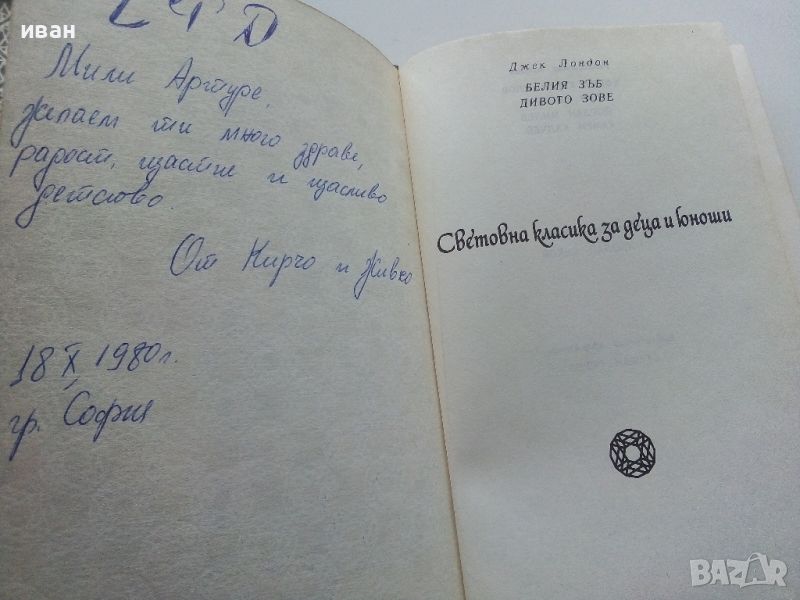 иван
Мили Артуре,
желаем ти много здраве,
радост, щастие и щасливо
детство.
От Кирчо и Живко
18 X, 1980 г.
гр. София
Джек Лондон
БЕЛИЯ ЗЪБ
ДИВОТО ЗОВЕ
Световна класика за деца и юноши
BAZAR